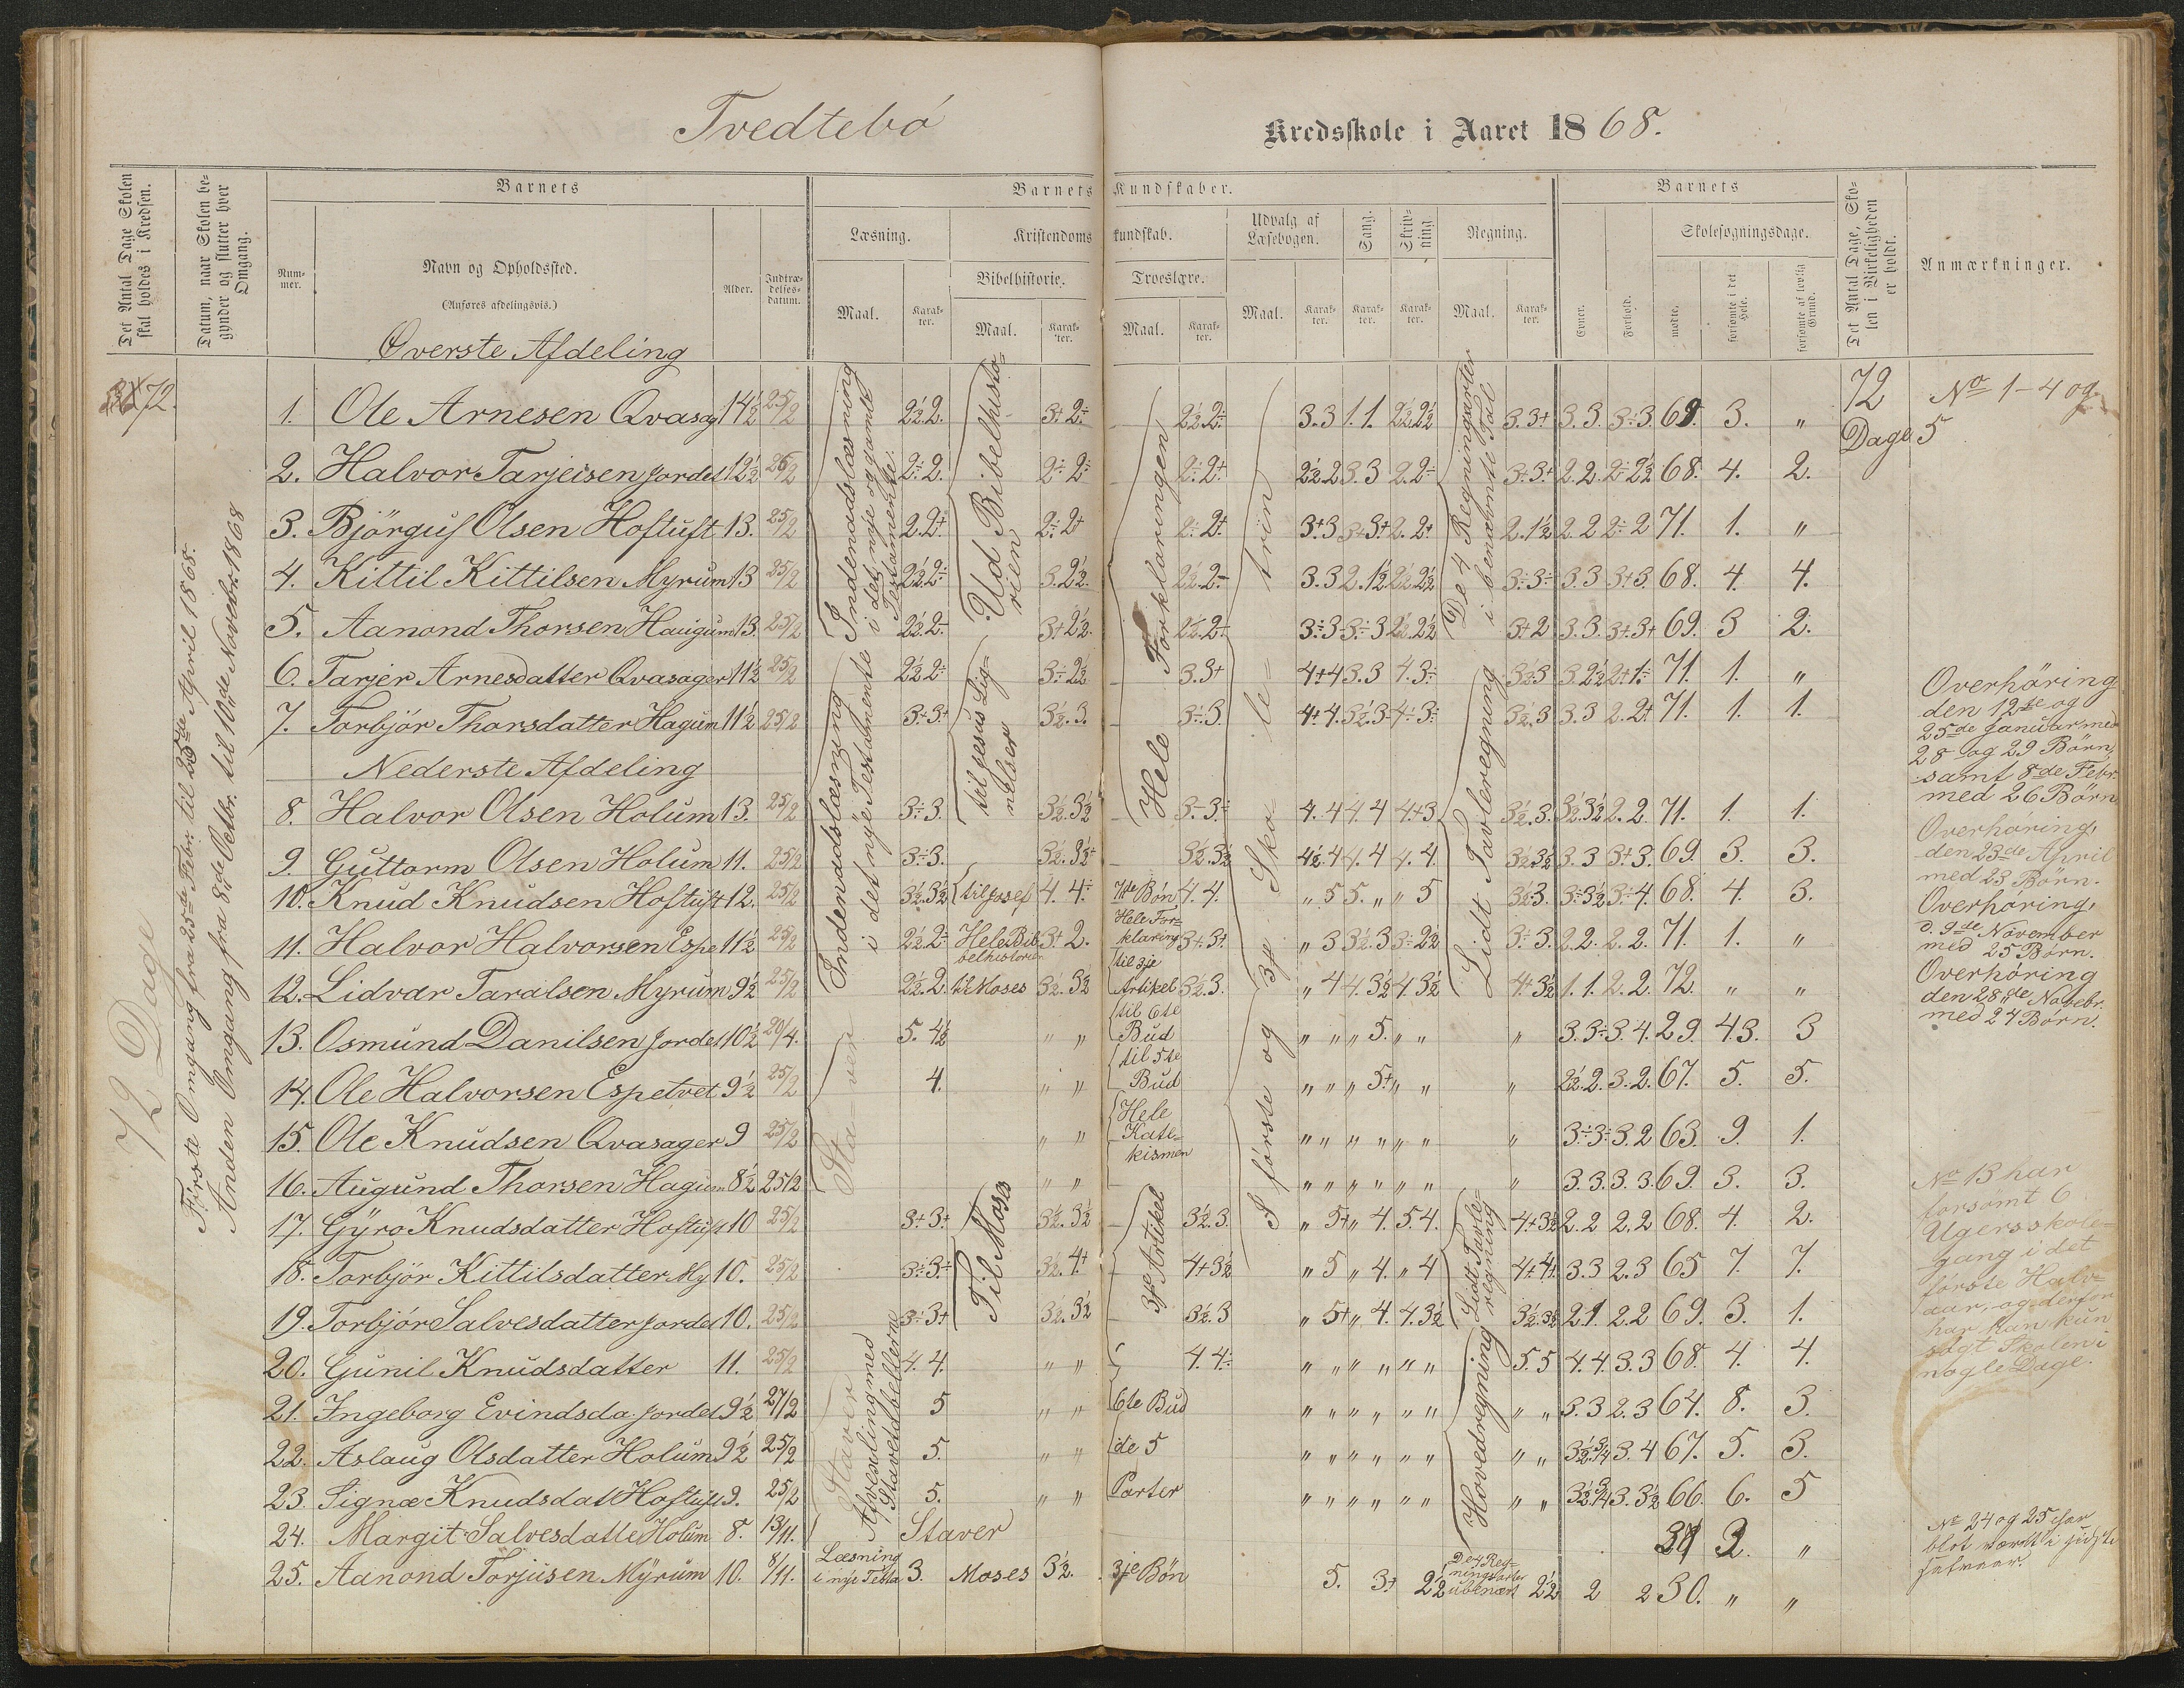 Tvedtebö Kredsskole i Aaret 1868.
Det Antal Dage Skolen skal holdes i Kredsen.
Datum, naar Skolen begynder og slutter hver Omgang.
Barnets
Barnets Kundskaber.
Barnets
Det Antal Dage, Skolen i Virkeligheden er holdt.
Anmærkninger.
Nummer.
Navn og Opholdssted.
(Anføres afdelingsvis.)
Alder.
Indtrædelsesdatum.
Læsning.
Kristendomskundskab.
Udvalg af Læsebogen.
Sang.
Skrivning.
Regning.
Evner.
Forhold.
Skolesøgningsdage.
Bibelhistorie.
Troeslære.
Maal. Karakter. Maal. Karakter. Maal. Karakter. Maal. Karakter. Karakter. Karakter. Maal. Karakter.
mødte. forsømte i det Hele. forsømte af lovlig Grund.
Överste Afdeling
72.
72 Dage
Förste Omgang fra 25de Febr. til 25de April 1868.
Anden Omgang fra 8de Octbr. til 10de Novebr. 1868
1. Ole Arnesen Qvasag 14½ 25/2 2½.2. 3+2÷ 2½.2÷ 3.3 1.1. 2½.2½ 3.3+ 3.3. 3÷3. 69. 3. "
2. Halvor Tarjeisen Jordet 12½ 26/2 2÷2. 2÷2÷ 2÷2+ 2½.2 3.3 2.2÷ 3+3+ 2.2. 2÷2½ 68. 4. 2.
3. Björguf Olsen Hoftuft 13. 25/2 2.2+ 2÷2+ 2÷2+ 3+3 3+3+ 2.2+ 2.1½ 2.2 2÷2 71. 1. "
4. Kittil Kittilsen Myrum 13 25/2 2½.2÷ 3.2½. 2½.2÷ 3.3 2.1½ 2½.2½ 3÷3÷ 3.3 3+3. 68. 4. 4.
5. Aanond Thorsen Haugum 13. 25/2 2½.2÷ 3+2½. 2½.2+ 3÷3 3÷3 2½.2½ 3+2 3.3. 3+3+ 69. 3 2.
6. Tarjer Arnesdatter Qvasager 11½ 25/2 2½2÷ 3÷2½ 3.3+ 4+4 3.3 4.3÷ 3½3 3.2½ 2+1÷ 71. 1. "
7. Torbjör Thorsdatter Hagum 11½ 25/2 3÷3+ 3½.3. 3÷3. 4+4. 3½.3 4÷3÷ 3½.3 3.3 2.2+ 71. 1. 1.
Nederste Afdeling
8. Halvor Olsen Holum 13. 25/2 3÷3. 3½.3½ 3÷3÷ 4.4 4.4 4+3 3½.3. 3½.3½ 2.2. 71. 1. 1.
9. Guttorm Olsen Holum 11. 25/2 3÷3. 3½.3½+ 3½.3½ 4½.4 4.4 4.4. 3½3½ 3.3 3+3. 69. 3. 3.
10. Knud Knudsen Hoftuft 12. 25/2 3½.3½ til Josef 4.4÷ 7de Bön 4.4. " 5 5. " " 5 3½3. 3÷3½ 3÷4. 68. 4. 3.
11. Halvor Halvorsen Espe 11½ 25/2 2½2÷ Hele Bibelhistorien 3+2. Hele Forklaring 3+3+ " 3 3½.3 3÷2½ 3÷3. 2.2. 2.2. 71. 1. "
12. Lidvar Taralsen Myrum 9½ 25/2 2½.2. til Moses 3½.3½ til 3je Artikel 3½.3. " 4 4.3½ 4.3½ 4+3½ 1.1. 2.2. 72. " "
13. Osmund Danilsen Jordet 10½ 20/4. 5.4½ " " til 6te Bud " " " 5. " " " 3.3÷ 3.4. 29. 43. 3
14. Ole Halvorsen Espetvet 9½ 25/2 4. " " til 5te Bud " " " 5+ " " " 2½.2. 3.2. 67. 5. 5.
15. Ole Knudsen Qvasager 9 25/2 " " Hele Katekismen " " " " " " " 3÷3÷ 3.2 63. 9. 1.
16. Augund Thorsen Hagum 8½ 25/2 " " " " " " " " " 3.3. 3.3. 69. 3. 3.
17. Gyro Knudsdatter Hoftuft 10 25/2 3+3+ 3½.3½ 3½.3. " 5+ " 4. 5.4. 4+3½ 2.2 2.2 68. 4. 2.
18. Torbjör Kittilsdatter My 10. 25/2 3÷3÷ 3½.4+ 4+3½ " 5 " 4. " 4 4+4+ 3.3 2.3 65 7. 7.
19. Torbjör Salvesdatter Jordet 10. 25/2 3÷3+ 3½.3½ 3½.3 " 5+ " 4. 4.3½ 3½.3½ 2.1. 2.2 69. 3. 1.
20. Gunil Knudsdatter 11. 25/2 4.4. " " 4.4÷ " " " " " " 5.5 4.4. 3.3 68. 4. 4.
21. Ingeborg Evindsda. Jordet 9½ 27/2 5 " " 6te Bud " " " " " " " " 3.3 2.3 64. 8. 3.
22. Aslaug Olsdatter Holum 9½ 25/2 5. " " de 5 " " " " " " " " 3½.3/4 3.4 67. 5. 3.
23 Signæ Knudsdat Hoftuft 9. 25/2 5. " " Parter " " " " " " " " 3½.3/4 3.3½ 66. 6. 5
24. Margit Salvesdatte Holum 8. 13/11. Staver 2. "
25. Aanond Torjusen Myrum 10. 8/11. Læsning i nye Testa 3. Moses 3½. 3je Bön 5. 3+ 2½ De 4 Regningsarter ubenævt 2½ 2 2 30. " "
Indenadslæsning i det nye og gamle Testamente.
Endenadslæsning i det nye Testamente
Staver
Staver Afvexling med Stavetabellerne
Ud Bibelhistorien
til Jesus Lignelser
Til Mose
Hele Forklaringen
3je Artikel
I förste og 3je Skoletrin
De 4 Regningsarter i benævnte Tal
Lidt Tavleregning
Lidt Tavleregning
Hovedregning
72 Dage
No 1-4 og 5
Overhöring
den 12te og
25de Januar med
28 og 29 Börn,
samt 8de Febr.
med 26 Börn
Overhöring,
den 23de April
med 23 Börn.
Overhöring,
d. 9de November
med 25 Börn.
Overhöring
den 28de Novebr.
med 24 Börn.
No 13 har
forsömt 6
Ugersskole-
gang i det
förste Halv-
aar, og derfor
har han kun
sögt Skolen i
nogle Dage.
No 24 og 25 har
blot været i sidste
Halvaar.